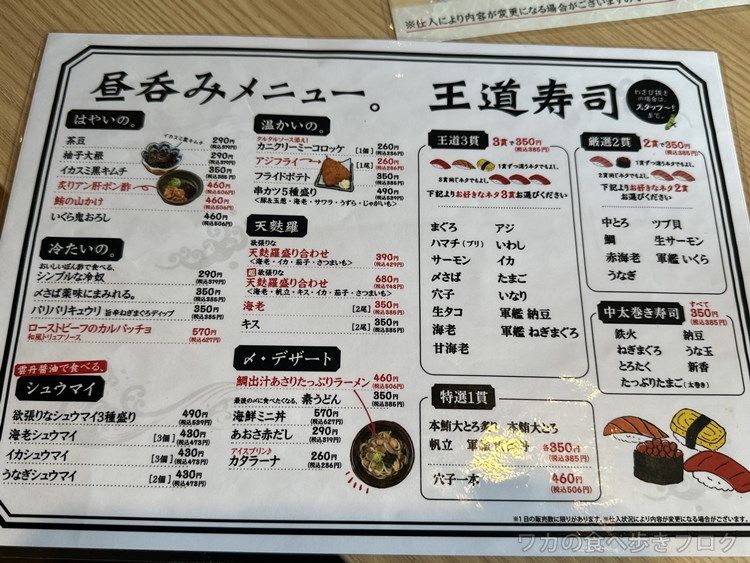 ※仕入により内容が変更になる場合がございます
昼呑みメニュー。
はやいの。
茶豆 290円(税込319円)
柚子大根 290円(税込319円)
イカスミ黒キムチ 350円(税込385円)
炙りアン肝ポン酢 460円(税込506円)
鮪の山かけ 460円(税込506円)
いくら鬼おろし 460円(税込506円)
イカスミ黒キムチ
冷たいの。
おいしいぽん酢で食べる、
シンプルな冷奴 290円(税込319円)
〆さば薬味にまみれる。 350円(税込385円)
バリバリキュウリ 旨辛ねぎまぐろディップ 350円(税込385円)
ローストビーフのカルパッチョ 570円(税込627円)
和風トリュフソース
雲丹醤油で食べる、
シュウマイ
欲張りなシュウマイ3種盛り 490円(税込539円)
海老シュウマイ [3個] 430円(税込473円)
イカシュウマイ [3個] 430円(税込473円)
うなぎシュウマイ [2個] 430円(税込473円)
温かいの。
タルタルソース添え!
カニクリーミーコロッケ [1個] 260円(税込286円)
アジフライ [1尾] 260円(税込286円)
フライドポテト 350円(税込385円)
串カツ5種盛り 490円(税込539円)
<豚&玉葱・海老・サワラ・うずら・じゃがいも>
天麩羅
欲張りな
天麩羅盛り合わせ 390円(税込429円)
<海老・イカ・茄子・さつまいも>
超欲張りな
天麩羅盛り合わせ 680円(税込748円)
<海老・帆立・キス・イカ・茄子・さつまいも>
海老 [2尾] 350円(税込385円)
キス [2尾] 350円(税込385円)
〆・デザート
鯛出汁あさりたっぷりラーメン 460円(税込506円)
最後の〆に食べたくなる、素うどん 350円(税込385円)
海鮮ミニ丼 570円(税込627円)
あおさ赤だし 290円(税込319円)
アイスプリン♪
カタラーナ 260円(税込286円)
王道寿司
わさび抜きの場合は、スタッフ〜!まで。
王道3貫 3貫で350円(税込385円)
1貫ずつ違うネタでもよし。
3貫同じネタでもよし。
下記よりお好きなネタ3貫お選びください
まぐろ アジ
ハマチ(ブリ) いわし
サーモン イカ
〆さば たまご
穴子 いなり
生タコ 軍艦 納豆
海老 軍艦 ねぎまぐろ
甘海老
厳選2貫 2貫で350円(税込385円)
1貫ずつ違うネタでもよし。
2貫同じネタでもよし。
下記よりお好きなネタ2貫
お選びください
中とろ ツブ貝
鯛 生サーモン
赤海老 軍艦 いくら
うなぎ
中太巻き寿司 すべて350円(税込385円)
鉄火 納豆
ねぎまぐろ うな玉
とろたく 新香
たっぷりたまご(太巻き)
特選1貫
本鮪大とろ炙り 本鮪大とろ
帆立 軍艦 各350円(税込385円)
穴子一本 460円(税込506円)
※1日の販売数に限りがあります。※仕入状況により内容が変更になる場合がございます。
ワカの食べ歩きブログ